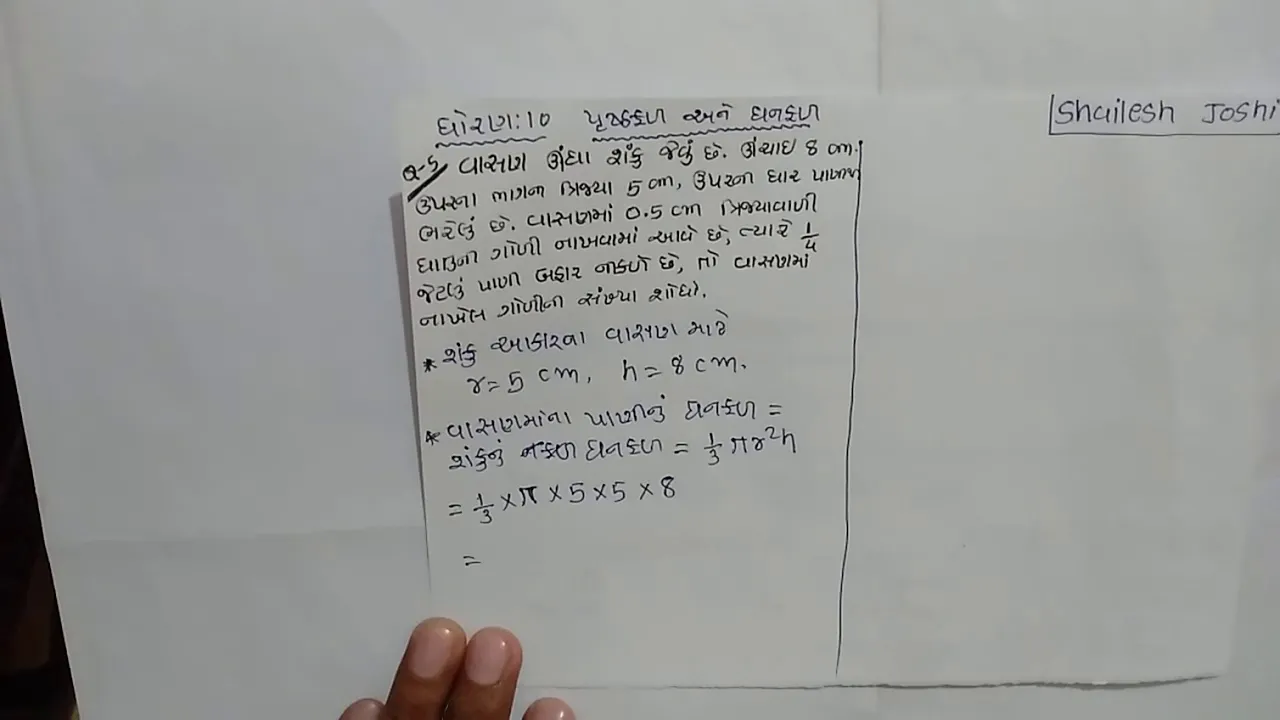 ધોરણ:10 પૃષ્ઠફળ અને ઘનફળ
Shailesh Joshi
Q-5 વાસણ ઊંધા શંકુ જેવું છે. ઊંચાઇ 8 cm.
ઉપરના ભાગની ત્રિજ્યા 5 cm, ઉપરની ધાર પાણીથી
ભરેલું છે. વાસણમાં 0.5 cm ત્રિજ્યાવાળી
ધાતુની ગોળી નાખવામાં આવે છે, ત્યારે 1/4
જેટલું પાણી બહાર નીકળે છે, તો વાસણમાં
નાખેલ ગોળીની સંખ્યા શોધો.
* શંકુ આકારના વાસણ માટે
r = 5 cm, h = 8 cm.
* વાસણમાંના પાણીનું ઘનફળ =
શંકુનું ઘનફળ = 1/3 πr²h
= 1/3 × π × 5 × 5 × 8
=